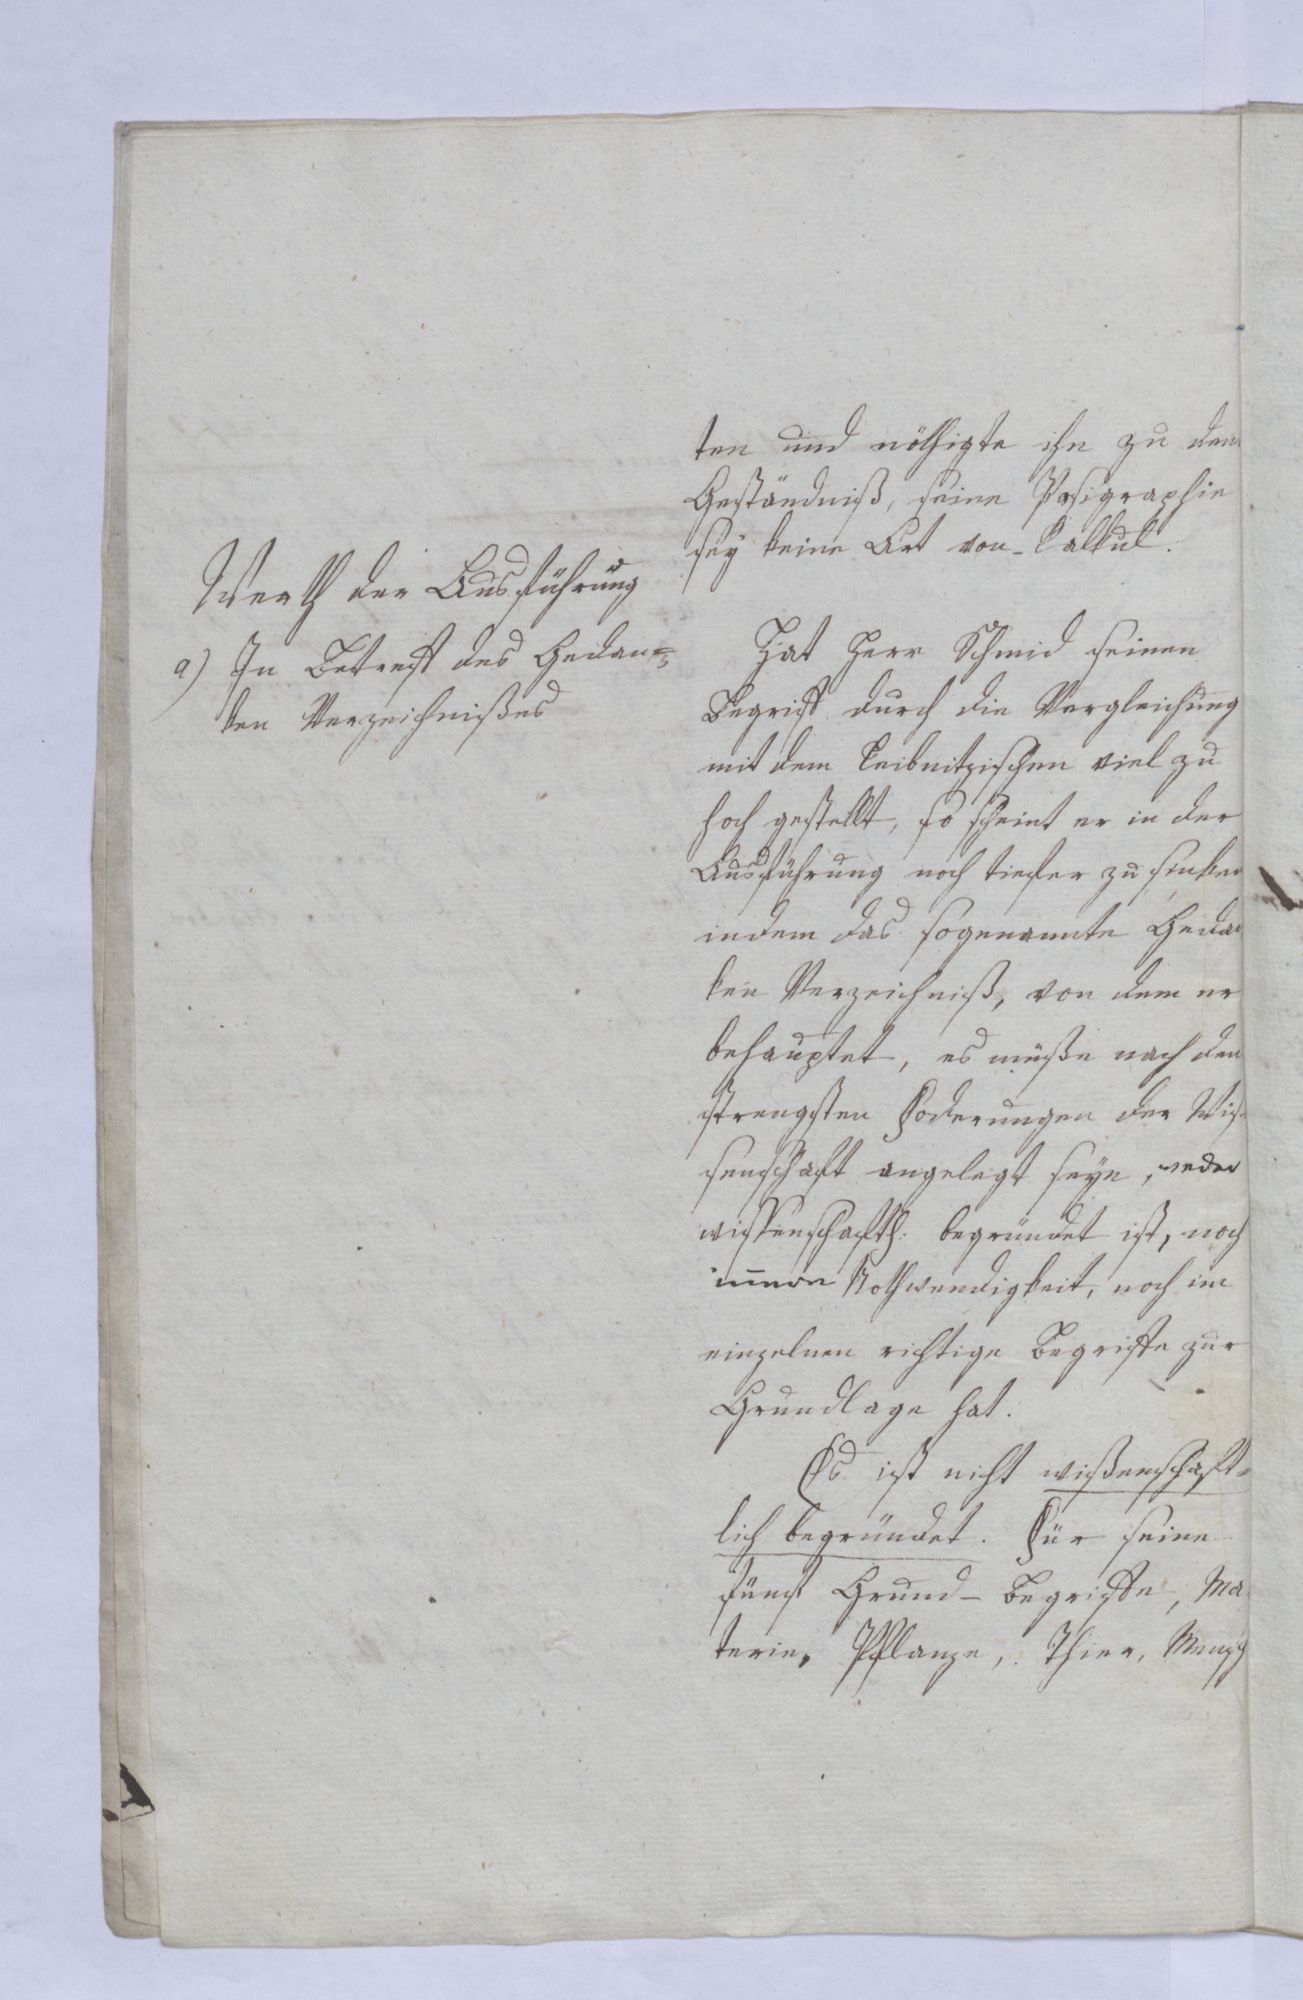 ten und nöthigte ihn zu dem
Geständniß, seine Pasigraphie
sey keine Art von Calkul.
Werth der Ausführung
a) In Betreff des Gedan=
ken Verzeichnißes
Hat Herr Schmid seinen
Begriff durch die Vergleichung
mit dem Leibnitzischen viel zu
hoch gestellt, so scheint er in der
Ausführung noch tiefer zu sinken
indem das sogenannte Gedan
ken Verzeichniß, von dem er
behauptet, es müße nach den
strengsten Foderungen der Wis-
senschaft angelegt seyn, weder
wissenschaftl. begründet ist, noch
innere Nothwendigkeit, noch im
einzelnen richtige Begriffe zur
Grundlage hat.
Es ist nicht wißenschaft=
lich begründet. Für seine
fünf Grund-Begriffe, Ma
terie, Pflanze, Thier, Mensch